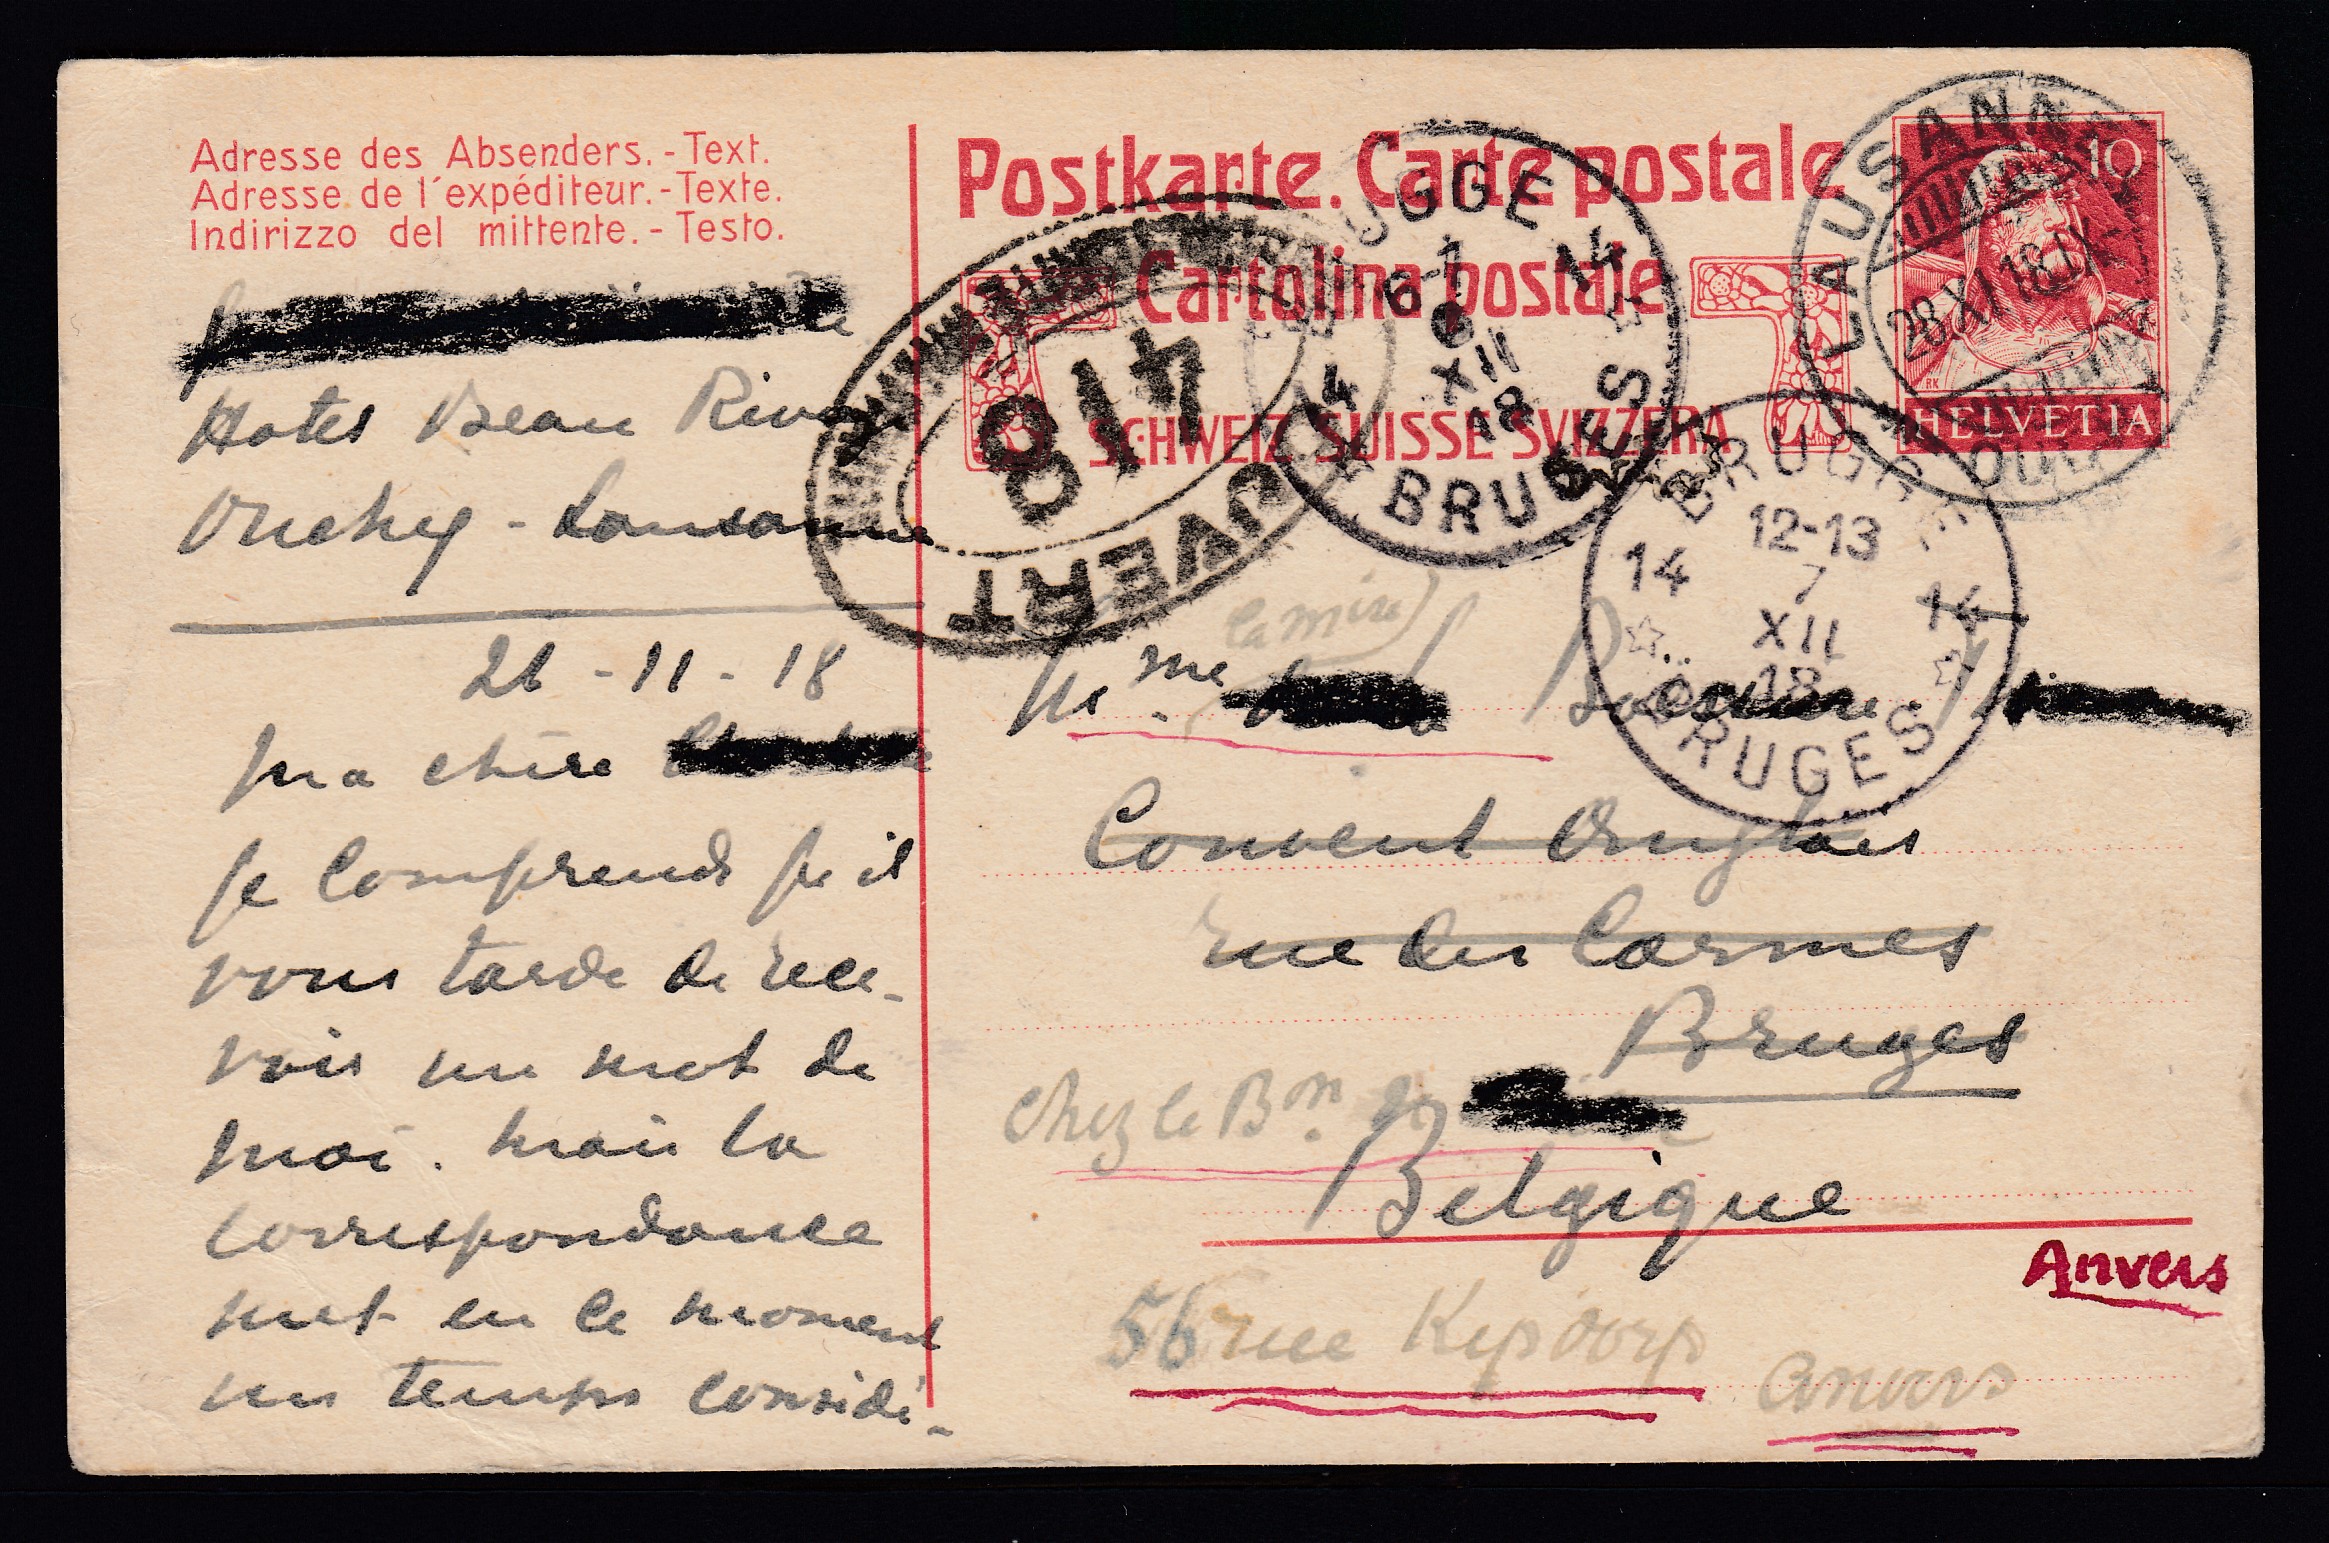 Adresse des Absenders. - Text.
Adresse de l'expéditeur. - Texte.
Indirizzo del mittente. - Testo.
Hotel Beau Rivage
Ouchy - Lausanne
28 - 11 - 18
Ma chère
Je comprends qu'il
vous tarde de rece-
voir un mot de
moi. Mais la
correspondance
met en ce moment
un temps considé-
Postkarte. Carte postale
Cartolina postale
SCHWEIZ SUISSE SVIZZERA
10
HELVETIA
LAUSANNE
28.XI.18.IX
OUCHY
BRUGGE
14 6-7 14
6
XII
18
BRUGES
BRUGGE
14 12-13 14
7
XII
18
BRUGES
OUVERT
418
Mme
Couvent Anglais
rue des Carmes
Bruges
chez le Bon de
Belgique
Anvers
56 rue Kipdorp
Anvers